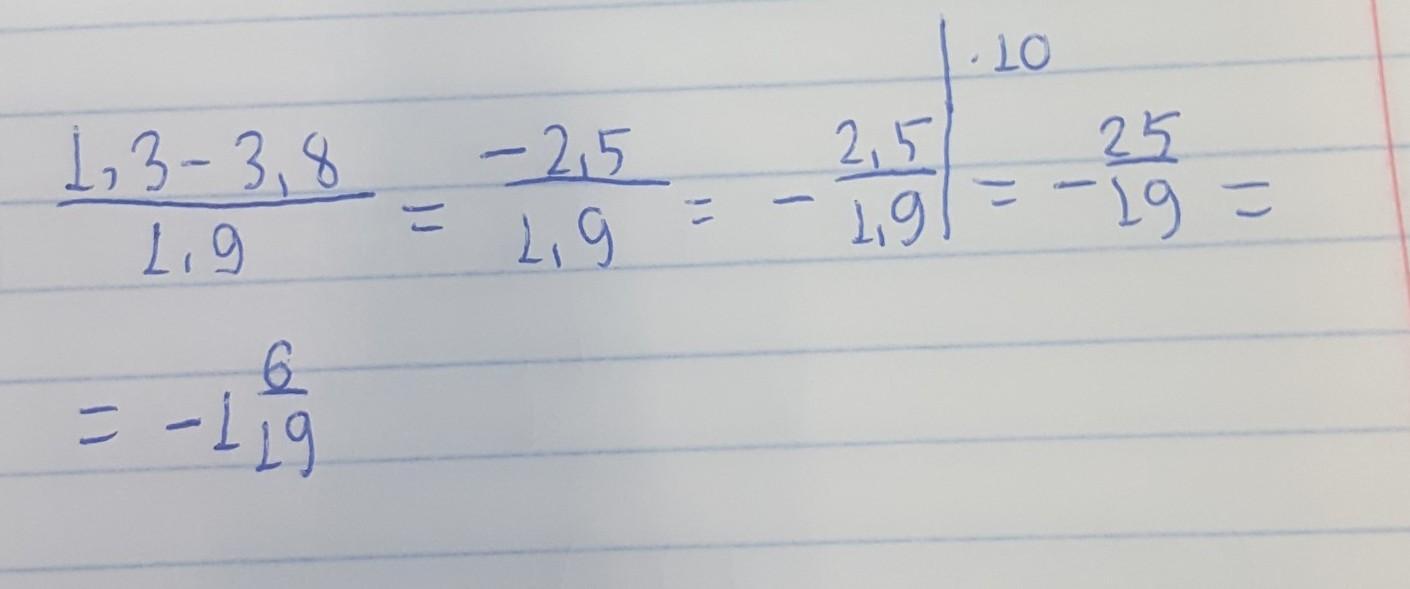 (1,3 - 3,8)/(1,9) = (-2,5)/(1,9) = - (2,5)/(1,9) | · 10 = - 25/19 =
= -1 6/19